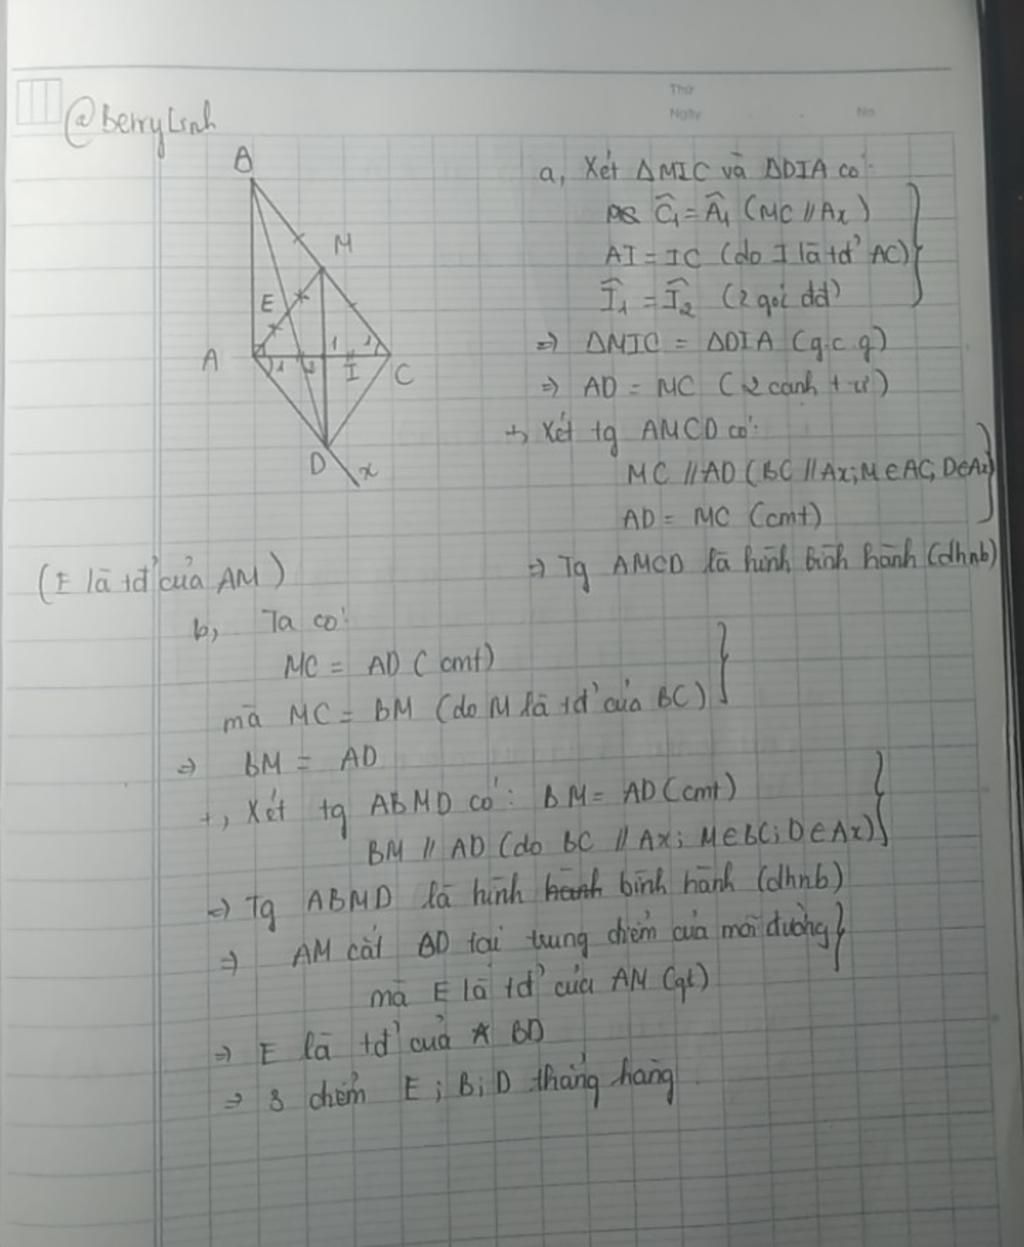 @BerryLinh
Thứ
Ngày
No
B
M
E
A
1
2
1
2
I
C
D
x
a, Xét ΔMIC và ΔDIA có:
Ĉ₁ = Â₁ (MC // Ax)
AI = IC (do I là tđ' AC)
Î₁ = Î₂ (2 gói đđ)
=> ΔMIC = ΔDIA (g.c.g)
=> AD = MC (2 cạnh t ư)
+, Xét tg AMCD có:
MC // AD (BC // Ax; M ∈ AC; D ∈ Ax)
AD = MC (cmt)
=> Tg AMCD là hình bình hành (dhnb)
(E là tđ' của AM)
b, Ta có:
MC = AD (cmt)
mà MC = BM (do M là tđ' của BC)
=> BM = AD
+, Xét tg ABMD có: BM = AD (cmt)
BM // AD (do BC // Ax; M ∈ BC; D ∈ Ax)
=> Tg ABMD là hình hành bình hành (dhnb)
=> AM cắt BD tại trung điểm của mỗi đường
mà E là tđ' của AM (gt)
=> E là tđ' của BD
=> 3 điểm E; B; D thẳng hàng